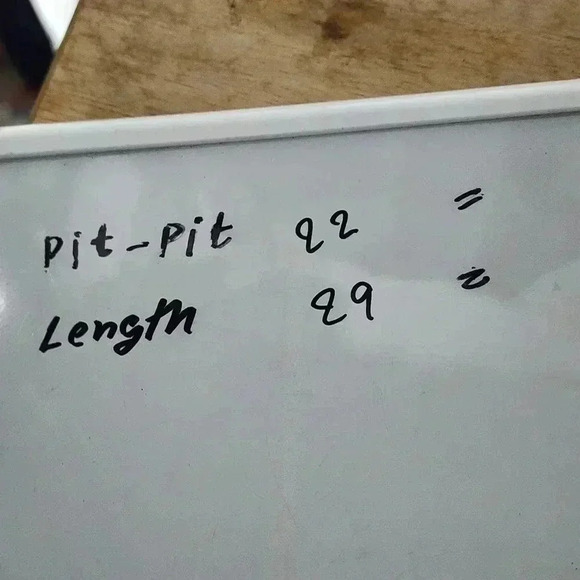 Pit-Pit 22 "
Length 29 "